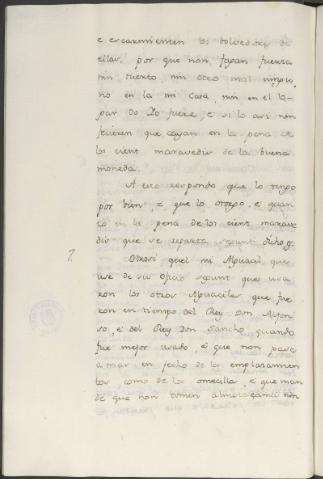 e escarmienten los bolvedores de
ellas, por que non fagan fuerza
nin tuerto, nin otro mal ningu-
no en la mi Casa, nin en el lo-
gar do Yo fuere, e si lo asi non
ficieren que cayan en la pena de
los cient maravedis de la buena
moneda.
A esto respondo que lo tengo
por bien, e que lo otorgo, e quan-
to en la pena de los cient marave-
dis que se reparta segunt dicho es.
7. Otrosi quel mi Alguacil que
use de su oficio segunt que usa-
ron los otros Alguaciles que fue-
ron en tiempo del Rey Don Alfon-
so, e del Rey Don Sancho, quando
fue mejor usado, e que non pase
a mas en fecho de los emplasamien-
tos, como de los omecillos, e que man-
de que non tomen almotacenía nin